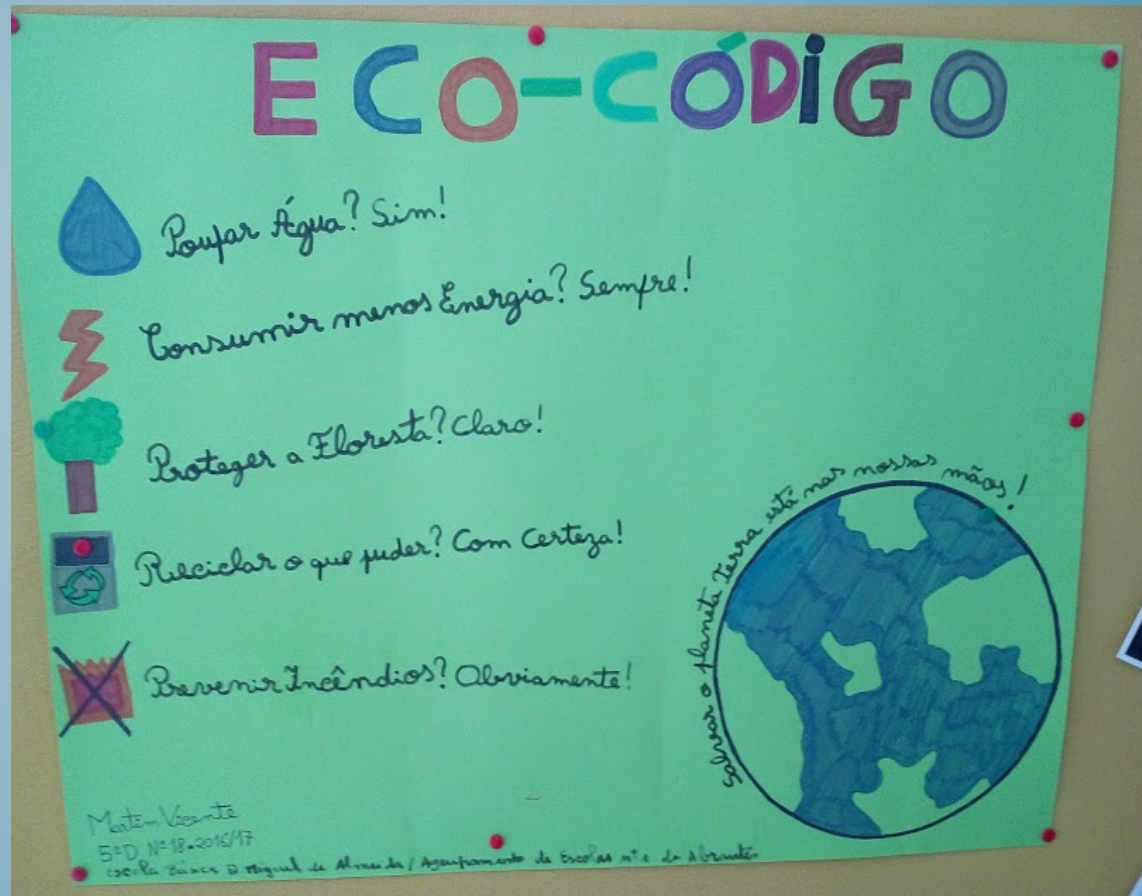 ECO-CÓDIGO
Poupar Água? Sim!
Consumir menos Energia? Sempre!
Proteger a Floresta? Claro!
Reciclar o que puder? Com Certeza!
Prevenir Incêndios? Obviamente!
Salvar o planeta Terra está nas nossas mãos!
Martim Vicente
5ºD Nº18-2016/17
Escola Básica D Miguel de Almeida / Agrupamento de Escolas nº1 de Abrantes